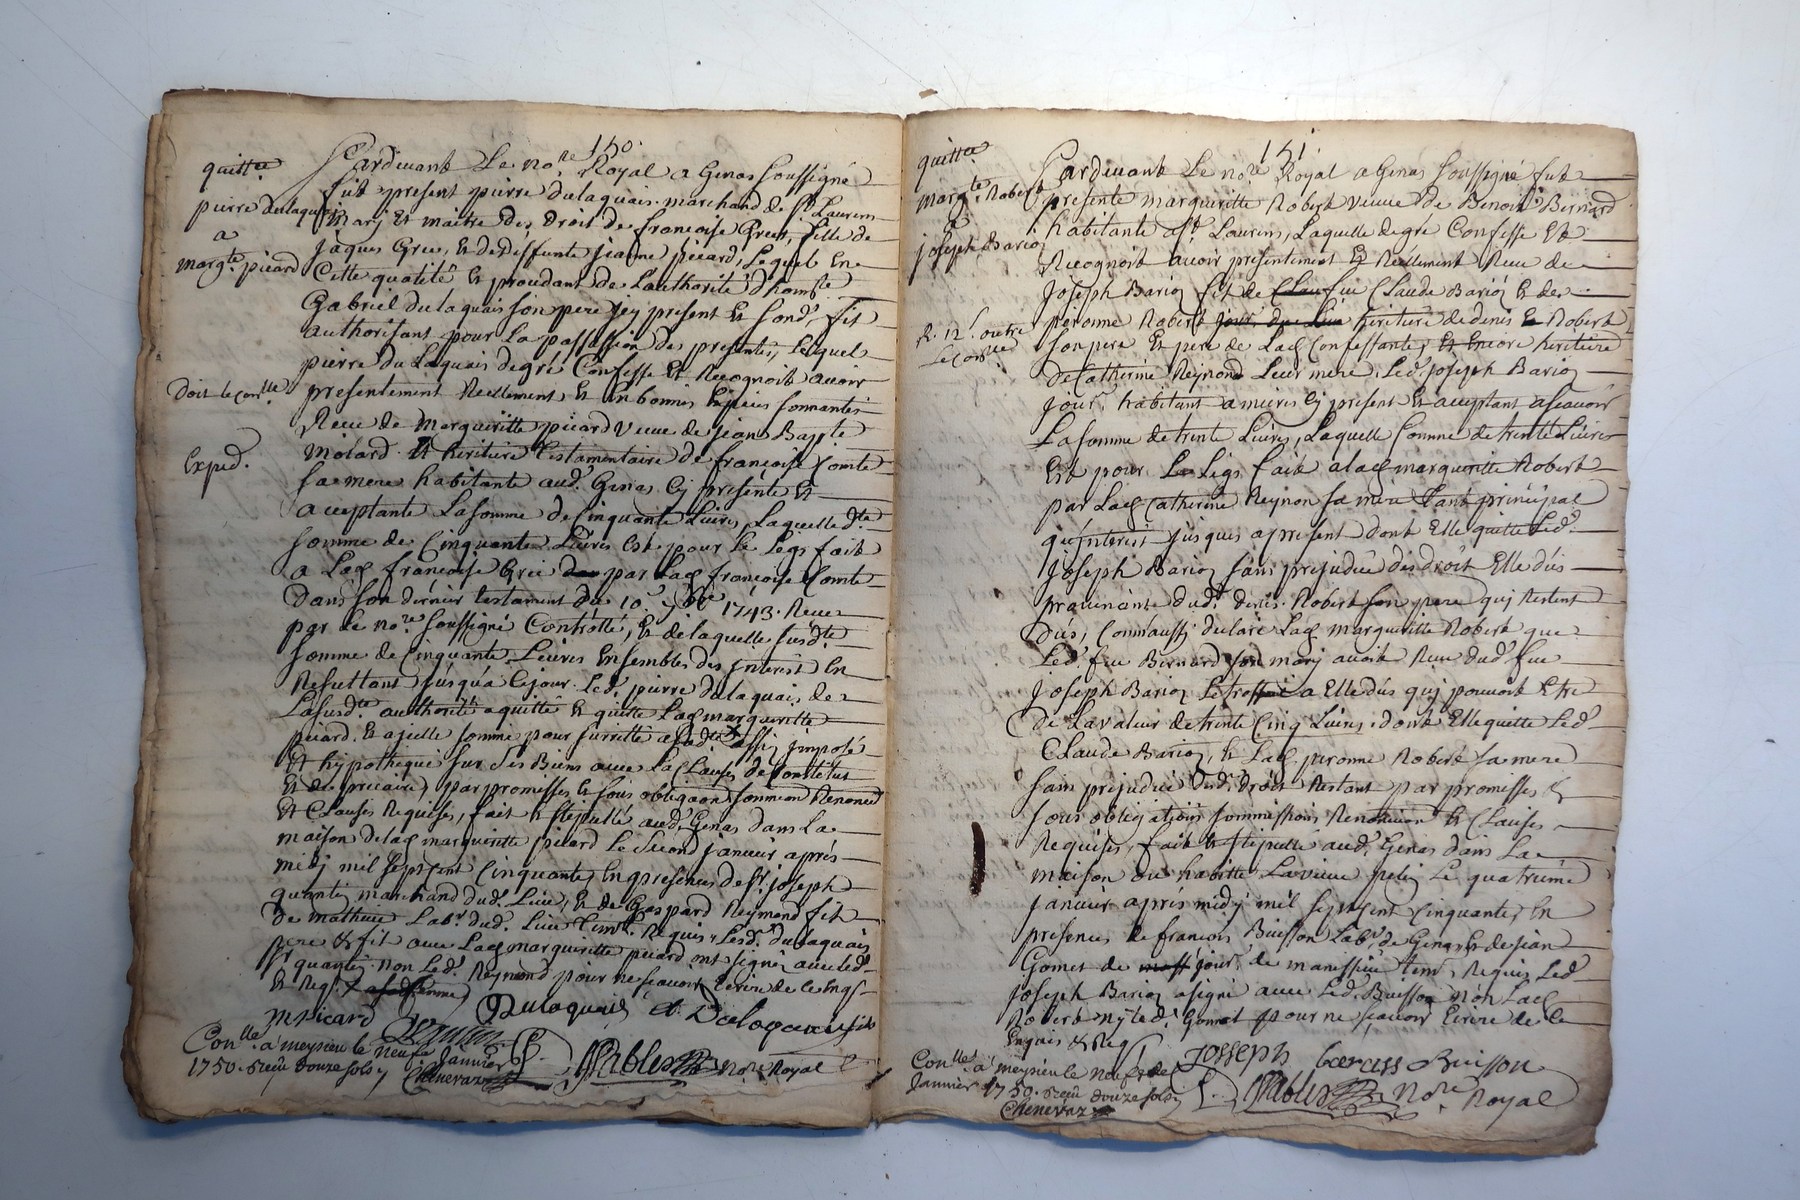 150.
quitt.ce
pierre dulaquais
a
marg.te picard
doit le con.lle
Exped.
Pardevant Le no.re Royal a Genas soussigné
fut present pierre dulaquais marchand de s.t Laurens
mary Et maitre des Droit de francoise Gree, fille de
jaques Gree, Et de deffunte jeanne picard, Lequel En
Cette qualité Et procedant de Lauthorité d'hon.ste
Gabriel dulaquais son pere Cy present Et sond.t fit
authorisant pour La passassion des presentes, Lequel
pierre du Laquais degré Confesse Et Recognoit avoir
presentement Reellement, Et En bonnes Especes sonnantes
Receu de Margueritte picard veuve de jean Bapt.te
Molard Et heritiere testamentaire de francoise Comte
sa mere habitante aud.t Genas Cy presente Et
acceptante La somme de Cinquante Livres, Laquelle d.te
somme de Cinquante Livres Est pour Le Legs fait
a Lad. francoise Gree par Lad. francoise Comte
dans son dernier testament du 10.e 1743. Receu
par Le no.re soussigné Controllé, Et de laquelle susd.te
somme de Cinquante Livres Ensembles des interest En
Resultant jusqu'a Cejour Led.t pierre dulaquais de
La susd.te authorité a quitté Et quitte Lad. margueritte
picard. Et a jcelle somme pour surrette a sad.te jmposé
Et hypothequé sur ses Biens avec La Clauses de Constitut
Et de precaire, par promesses Et sous obligaon soumion Renoncé
Et Clauses Requises, fait Et stipullé aud.t Genas dans La
maison de lad margueritte picard Le second janvier aprés
midy mil sept cent Cinquante, En presences de s.r joseph
quantin marchand dud.t Lieu, Et de Gaspard Reymond fit
de mathieu Lab.r dud.t Lieu tem. Requis Lesd.t dulaquais
pere & fit avec Lad margueritte picard ont signé avec led.
s.r quantin non Led.t Reymond pour ne scavoir Ecrire de ce Enqs.
Et Req.s
M picard Dulaquais Et Dulaquais fils
Con.lle a meysieu le neuf Janvier
1750. Receu douze sols
Chenevaz
No.re Royal
151
quitt.ce
marg.te Robert
a
joseph Barioz
R. 12.s outre
le con.lle
Pardevant Le no.re Royal a Genas soussigné fut
presente marguerite Robert veuve de Benoit Bernard
habitante a s.t Laurens, Laquelle degré Confesse Et
Recognoit avoir presentement Et Reellement Receu de
Joseph Barioz fit de feu Claude Barioz Et de
peronne Robert heritiere de denis Robert
son pere Et pere de Lad Confessante, Et Encore heritiere
de Catherine Reynond Leur mere, Led.t joseph Barioz
jour.r habitant a mieres Cy present Et acceptant ascavoir
La somme de trente Livres, Laquelle somme de trente Livres
Est pour Le Legs fait a lad marguerite Robert
par Lad Catherine Reynon sa mere tant principal
qu'interest jusques apresent dont Elle quitte Led.t
Joseph Barioz sans prejudice des droit Elle dus
provenants dud.t denis Robert son pere qui Restent
dus, Comm'aussy declare Lad marguerite Robert que
Led.t feu Bernard son mary avoit Receu dud.t feu
Joseph Barioz a Elle dus qui pouvoit Etre
de La valeur de trente Cinq Livres, dont Elle quitte Led.t
Claude Barioz, Et Lad peronne Robert sa mere
sans prejudice dud.t droit Restant par promesses &
sous obligations soumissions Renonciaon Et Clauses
Requises, fait Et stipulle aud.t Genas dans La
maison ou habitte La veuve Le quatrieme
janvier aprés midy mil sept cent Cinquante, En
presences de francois Buisson Lab.r de Genas Et de jean
Gomet jour.r de manissieu tem. Requis Led.t
joseph Barioz a signé avec Led.t Buisson non Lad
Robert ny led.t Gomet pour ne scavoir Ecrire de Ce
Enquis & Req.
Josseph barioz Buisson
Con.lle a meysieu le neuf de
Janvier 1750. Receu douze sols
Chenevaz
No.re Royal